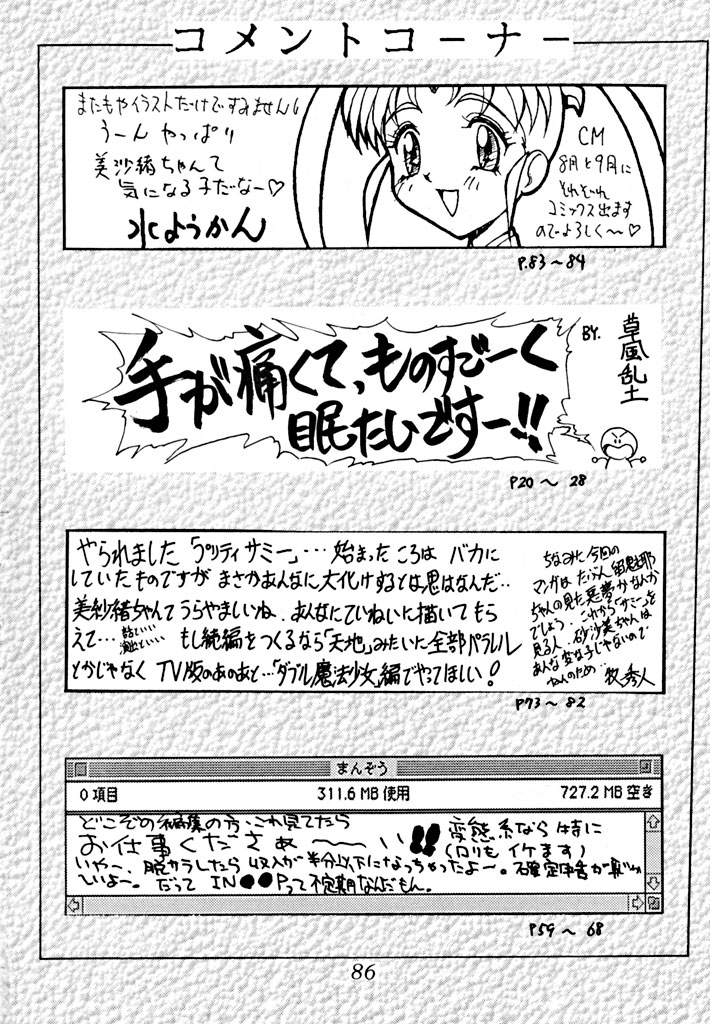 コメントコーナー
またもやイラストだけですみません
うーん やっぱり
美沙緒ちゃんて
気になる子だなー♡
水ようかん
CM
8月と9月に
それぞれ
コミックス出ます
のでよろしく〜♡
P.83〜84
手が痛くて、ものすごーく
眠たいですー!!
BY.
草風乱土
P20〜28
やられました「プリティサミー」…始まったころは バカに
していたものですが まさかあんなに大化けするとは思はなんだ‥
美紗緒ちゃんてうらやましいね、あんなにていねいに描いてもら
えて…
もし続編をつくるなら「天地」みたいに全部パラレル
とかじゃなく TV版のあのあと…「ダブル魔法少女」編でやってほしい!
ちなみに今回の
マンガは たぶん 留魅耶
ちゃんの見た悪夢かなんか
でしょう、これから「サミー」を
見る人、砂沙美ちゃんは
あんな変な子じゃないので
ねんのため‥
牧秀人
P73〜82
まんぞう
0 項目
311.6 MB 使用
727.2 MB 空き
どこぞの編集の方、これ見てたら
お仕事くださぁ〜〜い!!
変態系なら特に
(ロリもイケます)
いやー、脱サラしたら収入が半分以下になっちゃったよー。確定申告が
いよー。だって IN●●Pって不定期なんだもん。
P59〜68
86